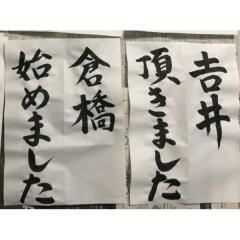 𠮷井
頂きました
倉橋
始めました